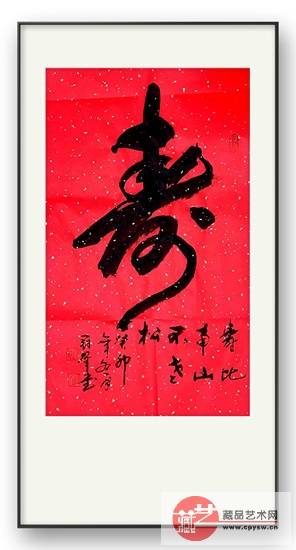 寿
寿比
南山
不老
松
癸卯
年冬月
书
藏品艺术网
www.cpysw.cn